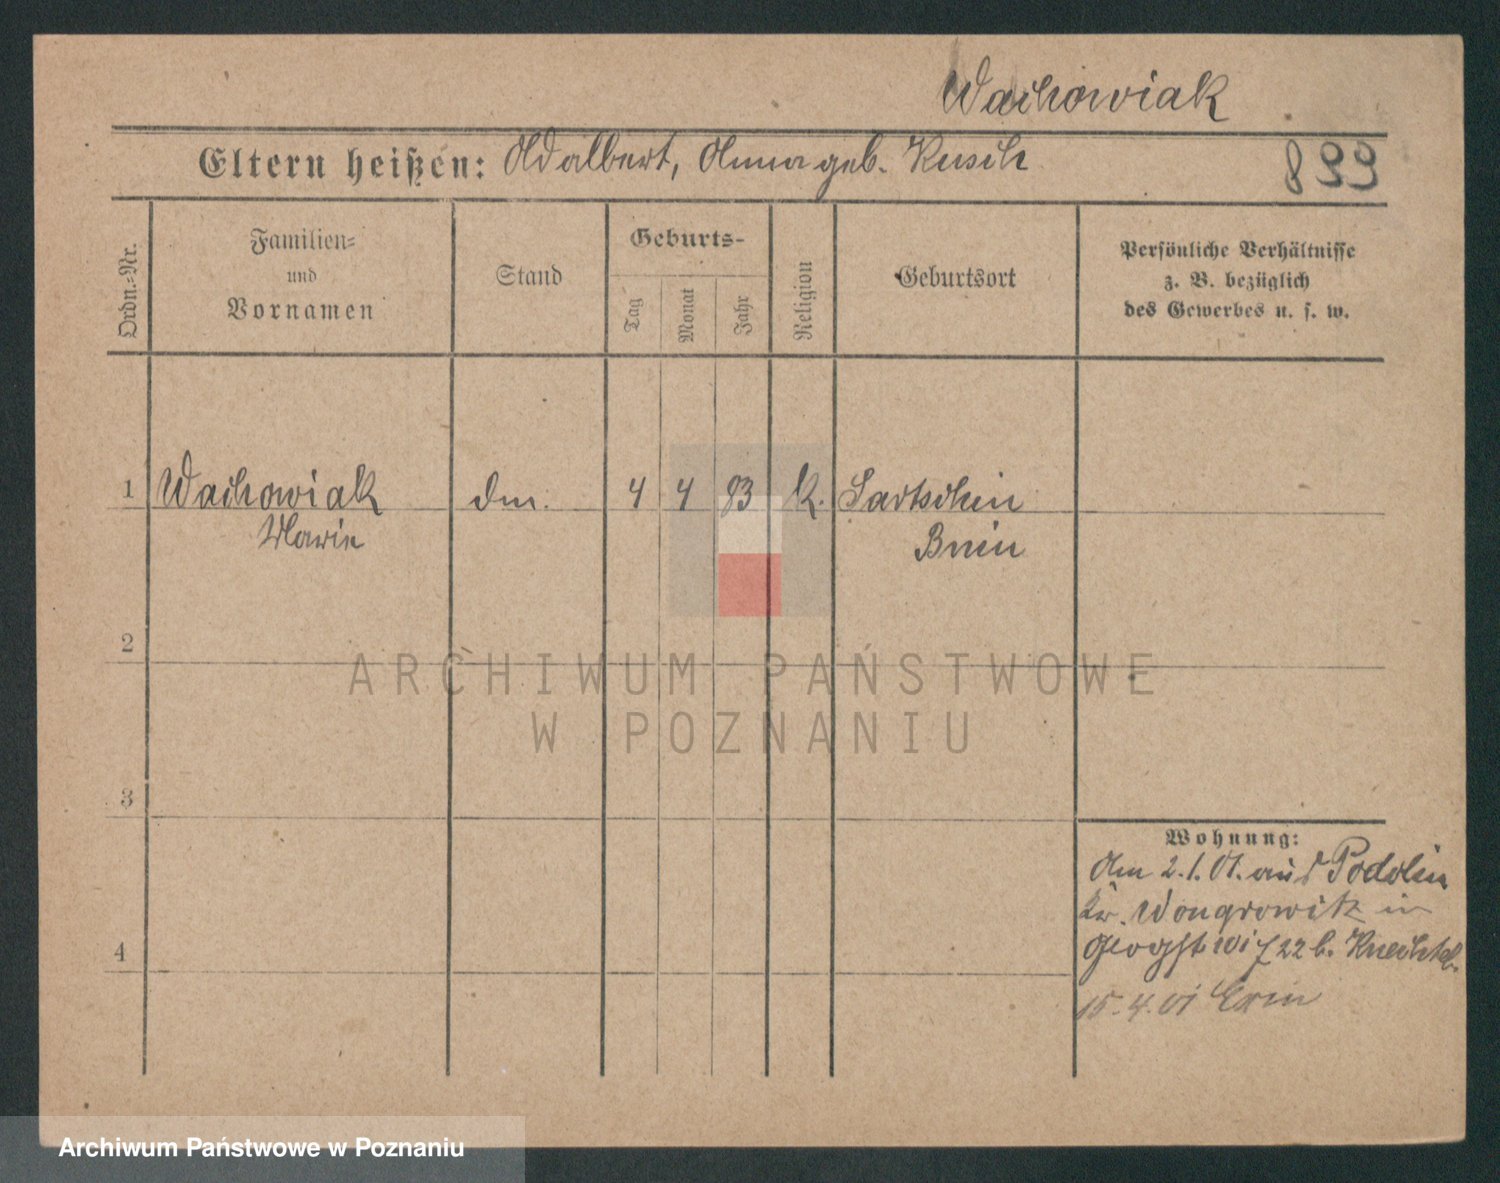 Wachowiak
Eltern heißen: Adalbert, Anna geb. Kusch
899
Ordn.-Nr.
Familien-
und
Vornamen
Stand
Geburts-
Tag
Monat
Jahr
Religion
Geburtsort
Persönliche Verhältnisse
z. B. bezüglich
des Gewerbes u. s. w.
1 Wachowiak dm. 4 4 83 k. Sartschin
Marie Bnin
2
ARCHIWUM PAŃSTWOWE
W POZNANIU
3
Wohnung:
Am 2.1.01. aus Podolin
Kr. Wongrowitz in
22 b. Knechtel.
4
15.4.01 Exin
Archiwum Państwowe w Poznaniu